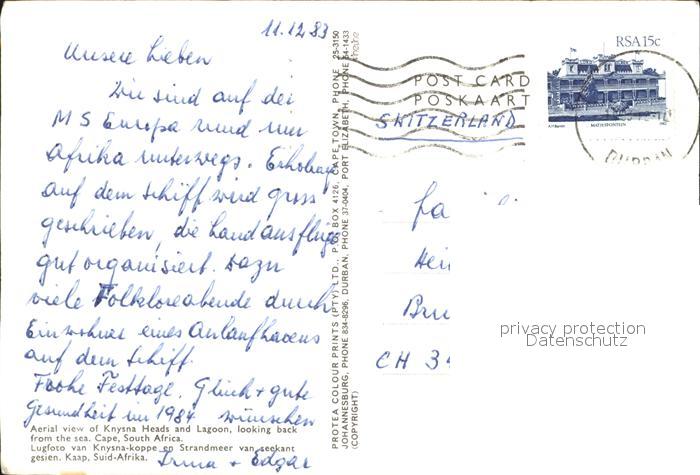 11.12.83
Unsere Lieben
Wir sind auf der
MS Europa rund um
Afrika unterwegs. Erholung
auf dem Schiff wird gross
geschrieben, die Landausflüge
gut organisiert. Dazu
viele Folkloreabende durch
Einwohner eines Anlaufhavens
auf dem Schiff.
Frohe Festtage, Glück + gute
Gesundheit im 1984 wünschen
Irma + Edgar
Aerial view of Knysna Heads and Lagoon, looking back
from the sea. Cape, South Africa.
Lugfoto van Knysna-koppe en Strandmeer van seekant
gesien. Kaap, Suid-Afrika.
PROTEA COLOUR PRINTS (PTY) LTD., P.O. BOX 4126, CAPE TOWN, PHONE 25-3150
JOHANNESBURG, PHONE 834-8296, DURBAN, PHONE 37-0404, PORT ELIZABETH, PHONE 54-1433
(COPYRIGHT)
POST CARD
POSKAART
SWITZERLAND
RSA 15c
MATJIESFONTEIN
DURBAN
CH 3
privacy protection
Datenschutz